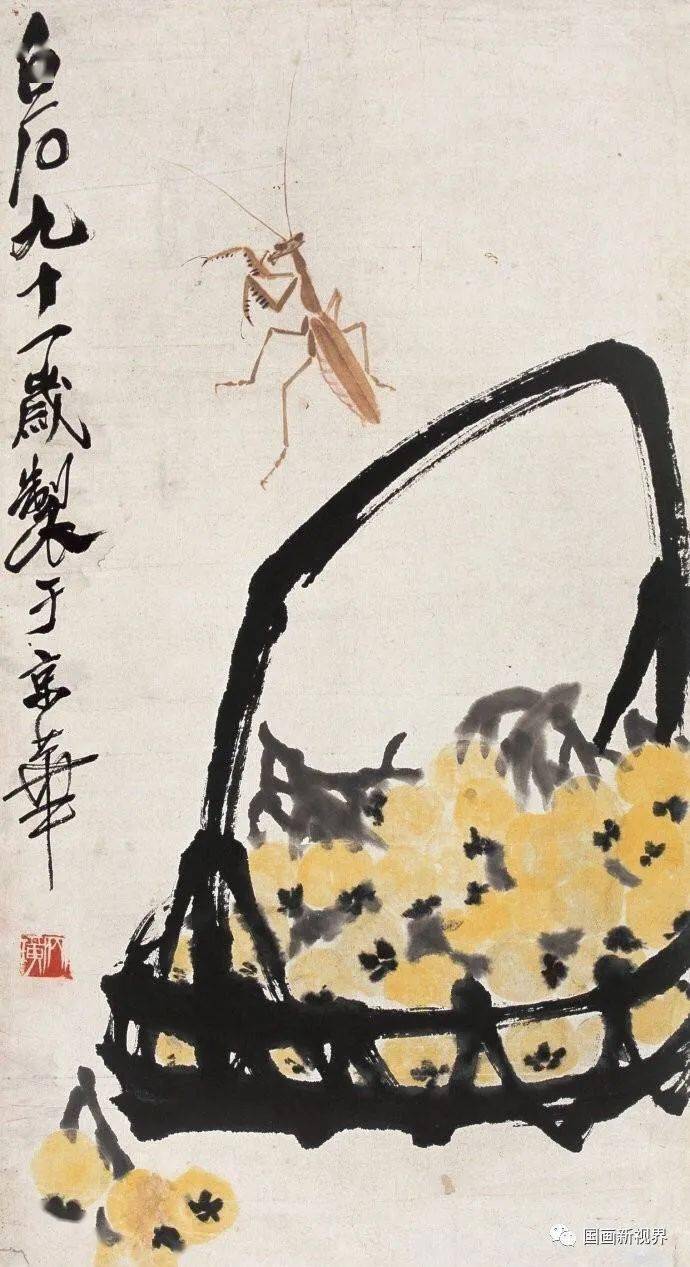 白石九十一歲製于京華
国画新视界